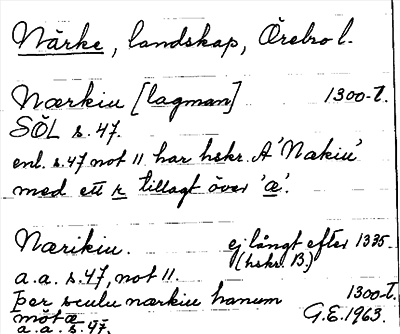 Närke, landskap, Örebro l.
Nærkiu [lagman] 1300-t.
SÖL s. 47.
enl. s. 47 not 11 har hskr. A 'Nækiu'
med ett r tillagt över 'æ'.
Nærikiu. ej långt efter 1335
(hskr. B.)
a.a. s. 47, not 11.
þer sculu nærkiu hanum 1300-t.
möta
a.a. s. 47. G.E. 1963.